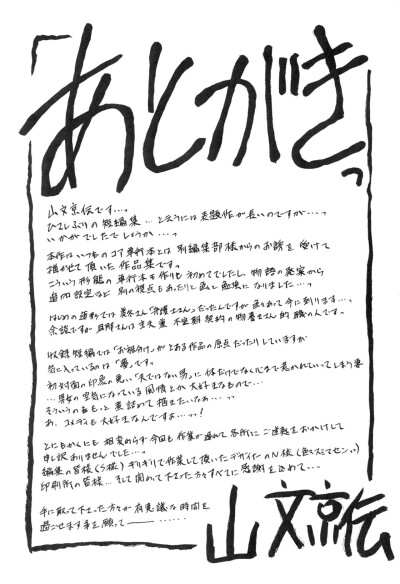 「あとがき」
山文京伝です…。
ひさしぶりの短編集…と云うには表題作が長いのですが…。
いかがでしたでしょうか…。
本作はいつものコア単行本とは 別編集部様からのお誘を受けて
描かせて頂いた作品集です。
こういう形態の 単行本を作りも初めてでしたし、物語の発案から
追加設定など 別の視点もあったりと色々勉強になりました…。
はじめの連載では 美弥さん「弁護士さん」だったんですが色々あって今に到ります…。
余談ですが旦那さんは 不定期契約の物書さん的職の人です。
収録短編では「お裾分け」がとある作品の原点だったりしていますが
気に入っているのは「憂」です。
初対面の印象の悪い「夫ではない男」に体だけでなく心まで惹かれていってしまう妻
…男女の空気になっている関係とか大好きなもので…
そういうのをもっと煮詰めて描きたいなぁ…。
あ、コメディも大好きなんですよ…っ!
とにもかくにも 相変わらず今回も作業が遅れて各所にご迷惑をおかけして
申し訳ありませんでした…。
編集の皆様(S様)ギリギリで作業して頂いたデザイナーのN様(色々スミマセン)
印刷所の皆様…そして関わって下さった方々すべてに感謝を込めて…
手に取って下さった方々が有意義な時間を
過ごせます事を願って―……
山文京伝